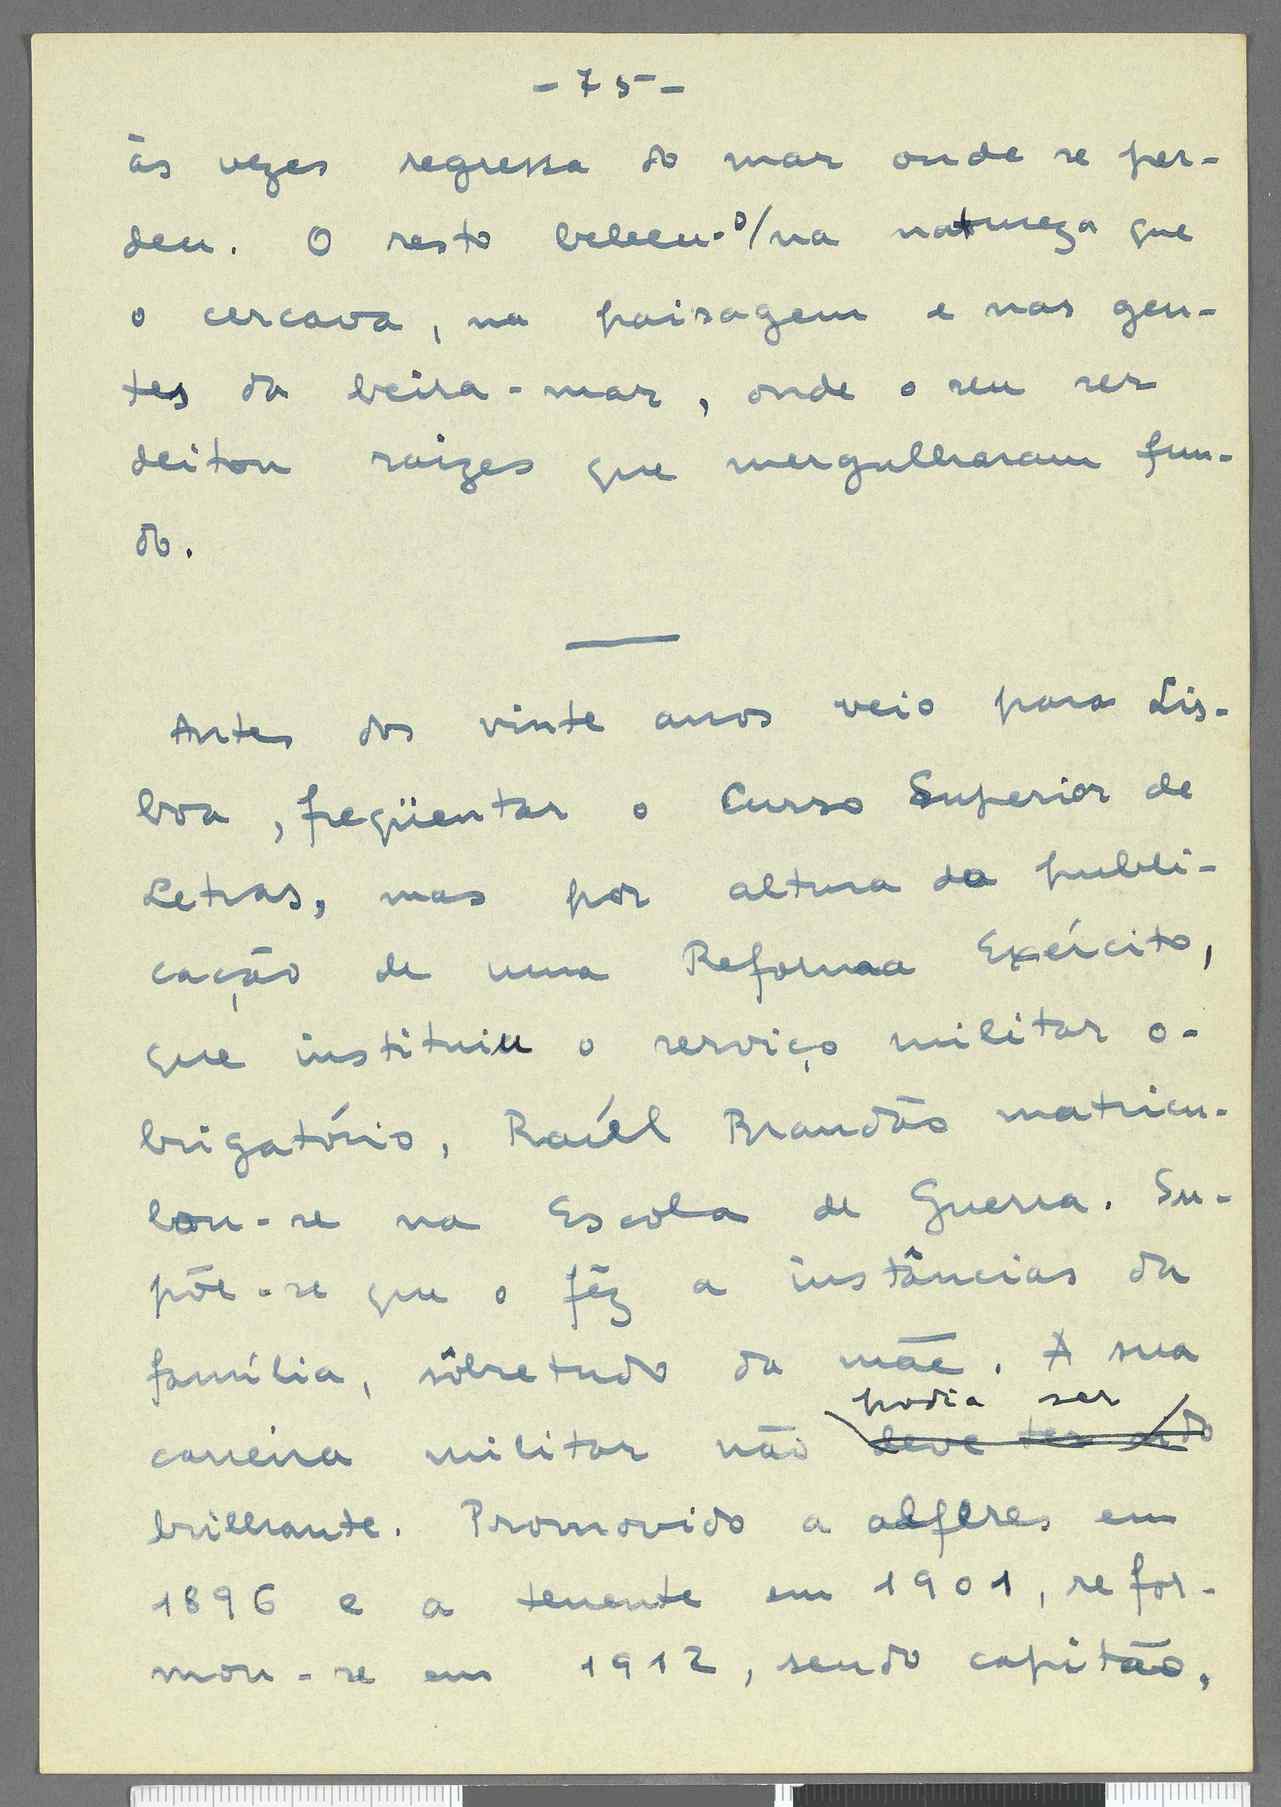 - 75 -
às vezes regressa do mar onde se per-
deu. O resto bebeu-o/na natureza que
o cercava, na paisagem e nas gen-
tes da beira-mar, onde o seu ser
deitou raizes que mergulharam fun-
do.
Antes dos vinte anos veio para Lis-
boa, freqüentar o Curso Superior de
Letras, mas por altura da publi-
cação de uma Reforma Exército,
que instituiu o serviço militar o-
brigatório, Raúl Brandão matricu-
lou-se na Escola de Guerra. Su-
põe-se que o fêz a instâncias da
família, sôbretudo da mãe. A sua
podia ser
carreira militar não deve ter sido
brilhante. Promovido a alferes em
1896 e a tenente em 1901, refor-
mou-se em 1912, sendo capitão,